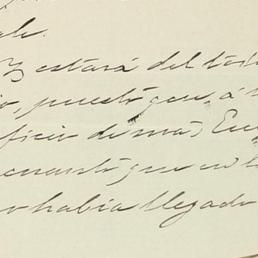 ale.
Y estará del tod
io, puesto que, á
ficio di mad Eu
cuanto que en l
o habia llegado